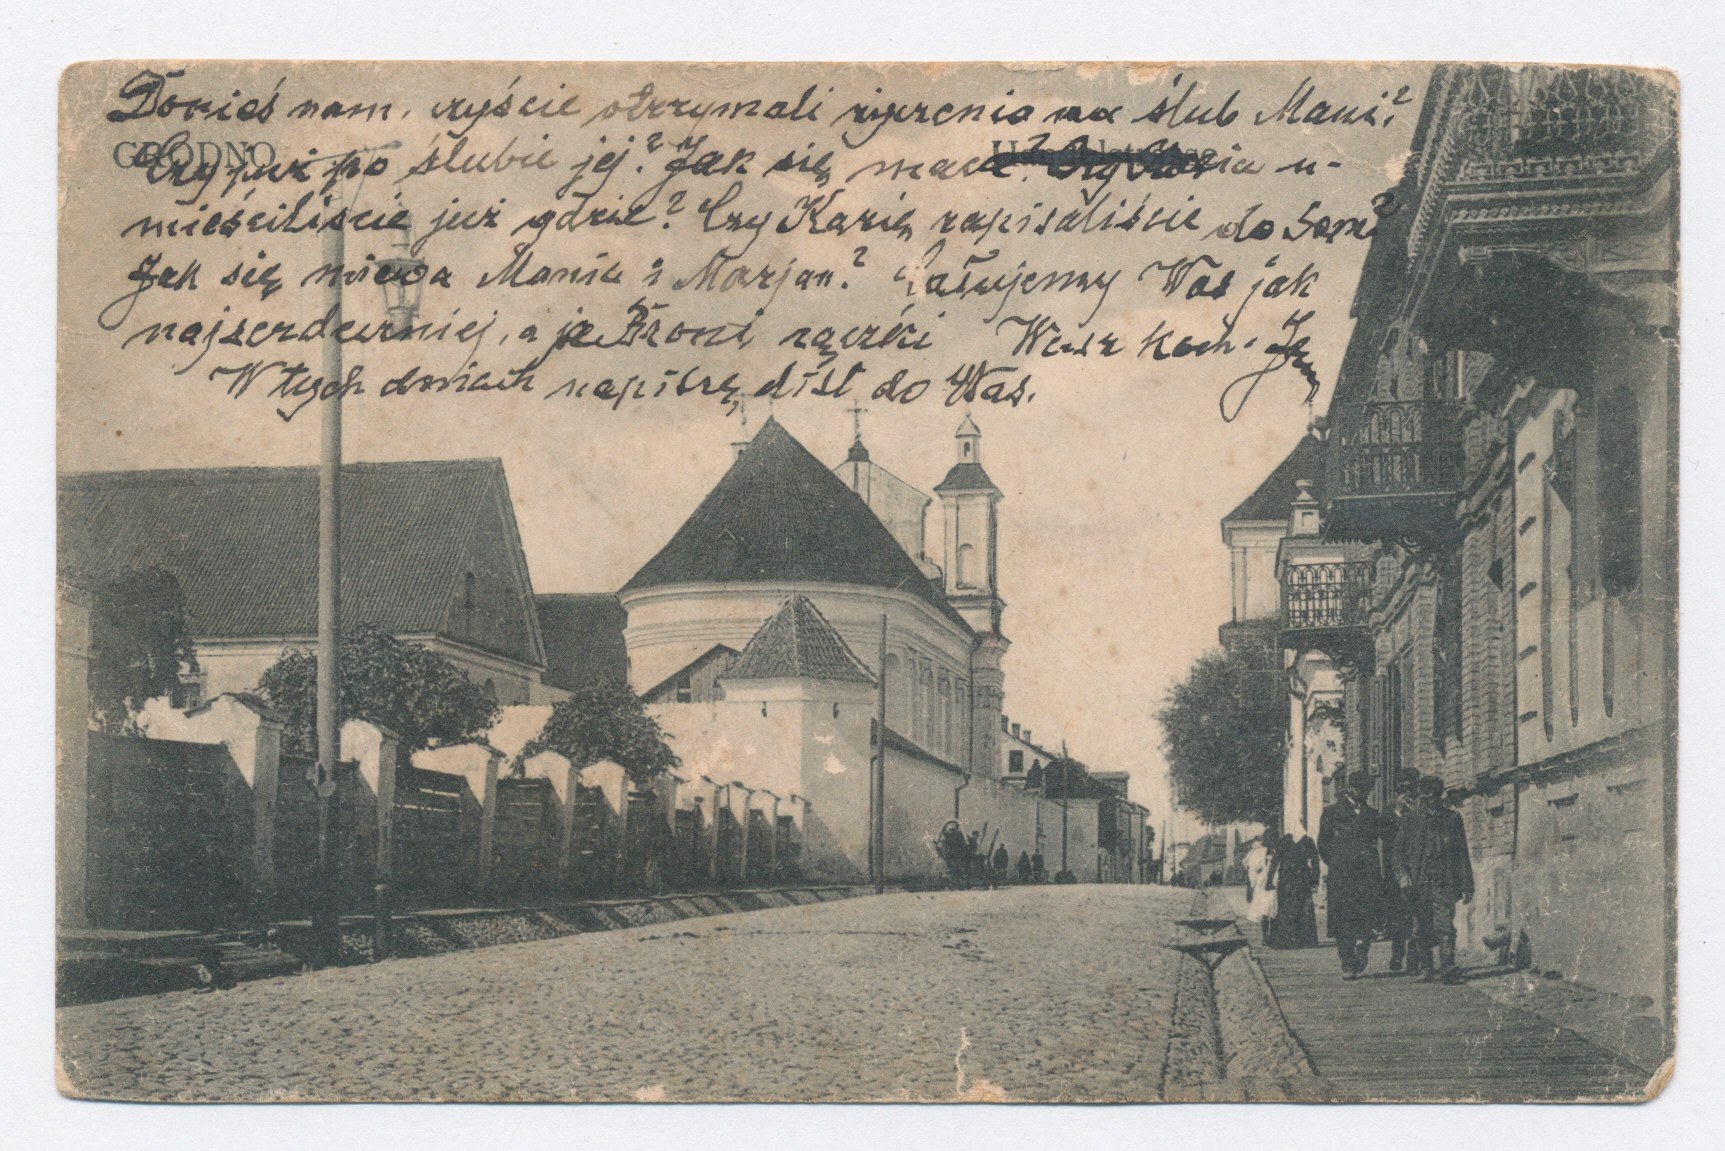 Donieś nam, czyście otrzymali życzenia na ślub Mani?
GRODNO
Czy już po ślubie jej? Jak się macie? Czy u-
mieściliście już gdzie? Czy Kazię zapisaliście do Sem?
Jak się miewa Mania i Marjan? Całujemy Was jak
najserdeczniej, a ja Broni rączki Wasz koch.
W tych dniach napiszę list do Was.